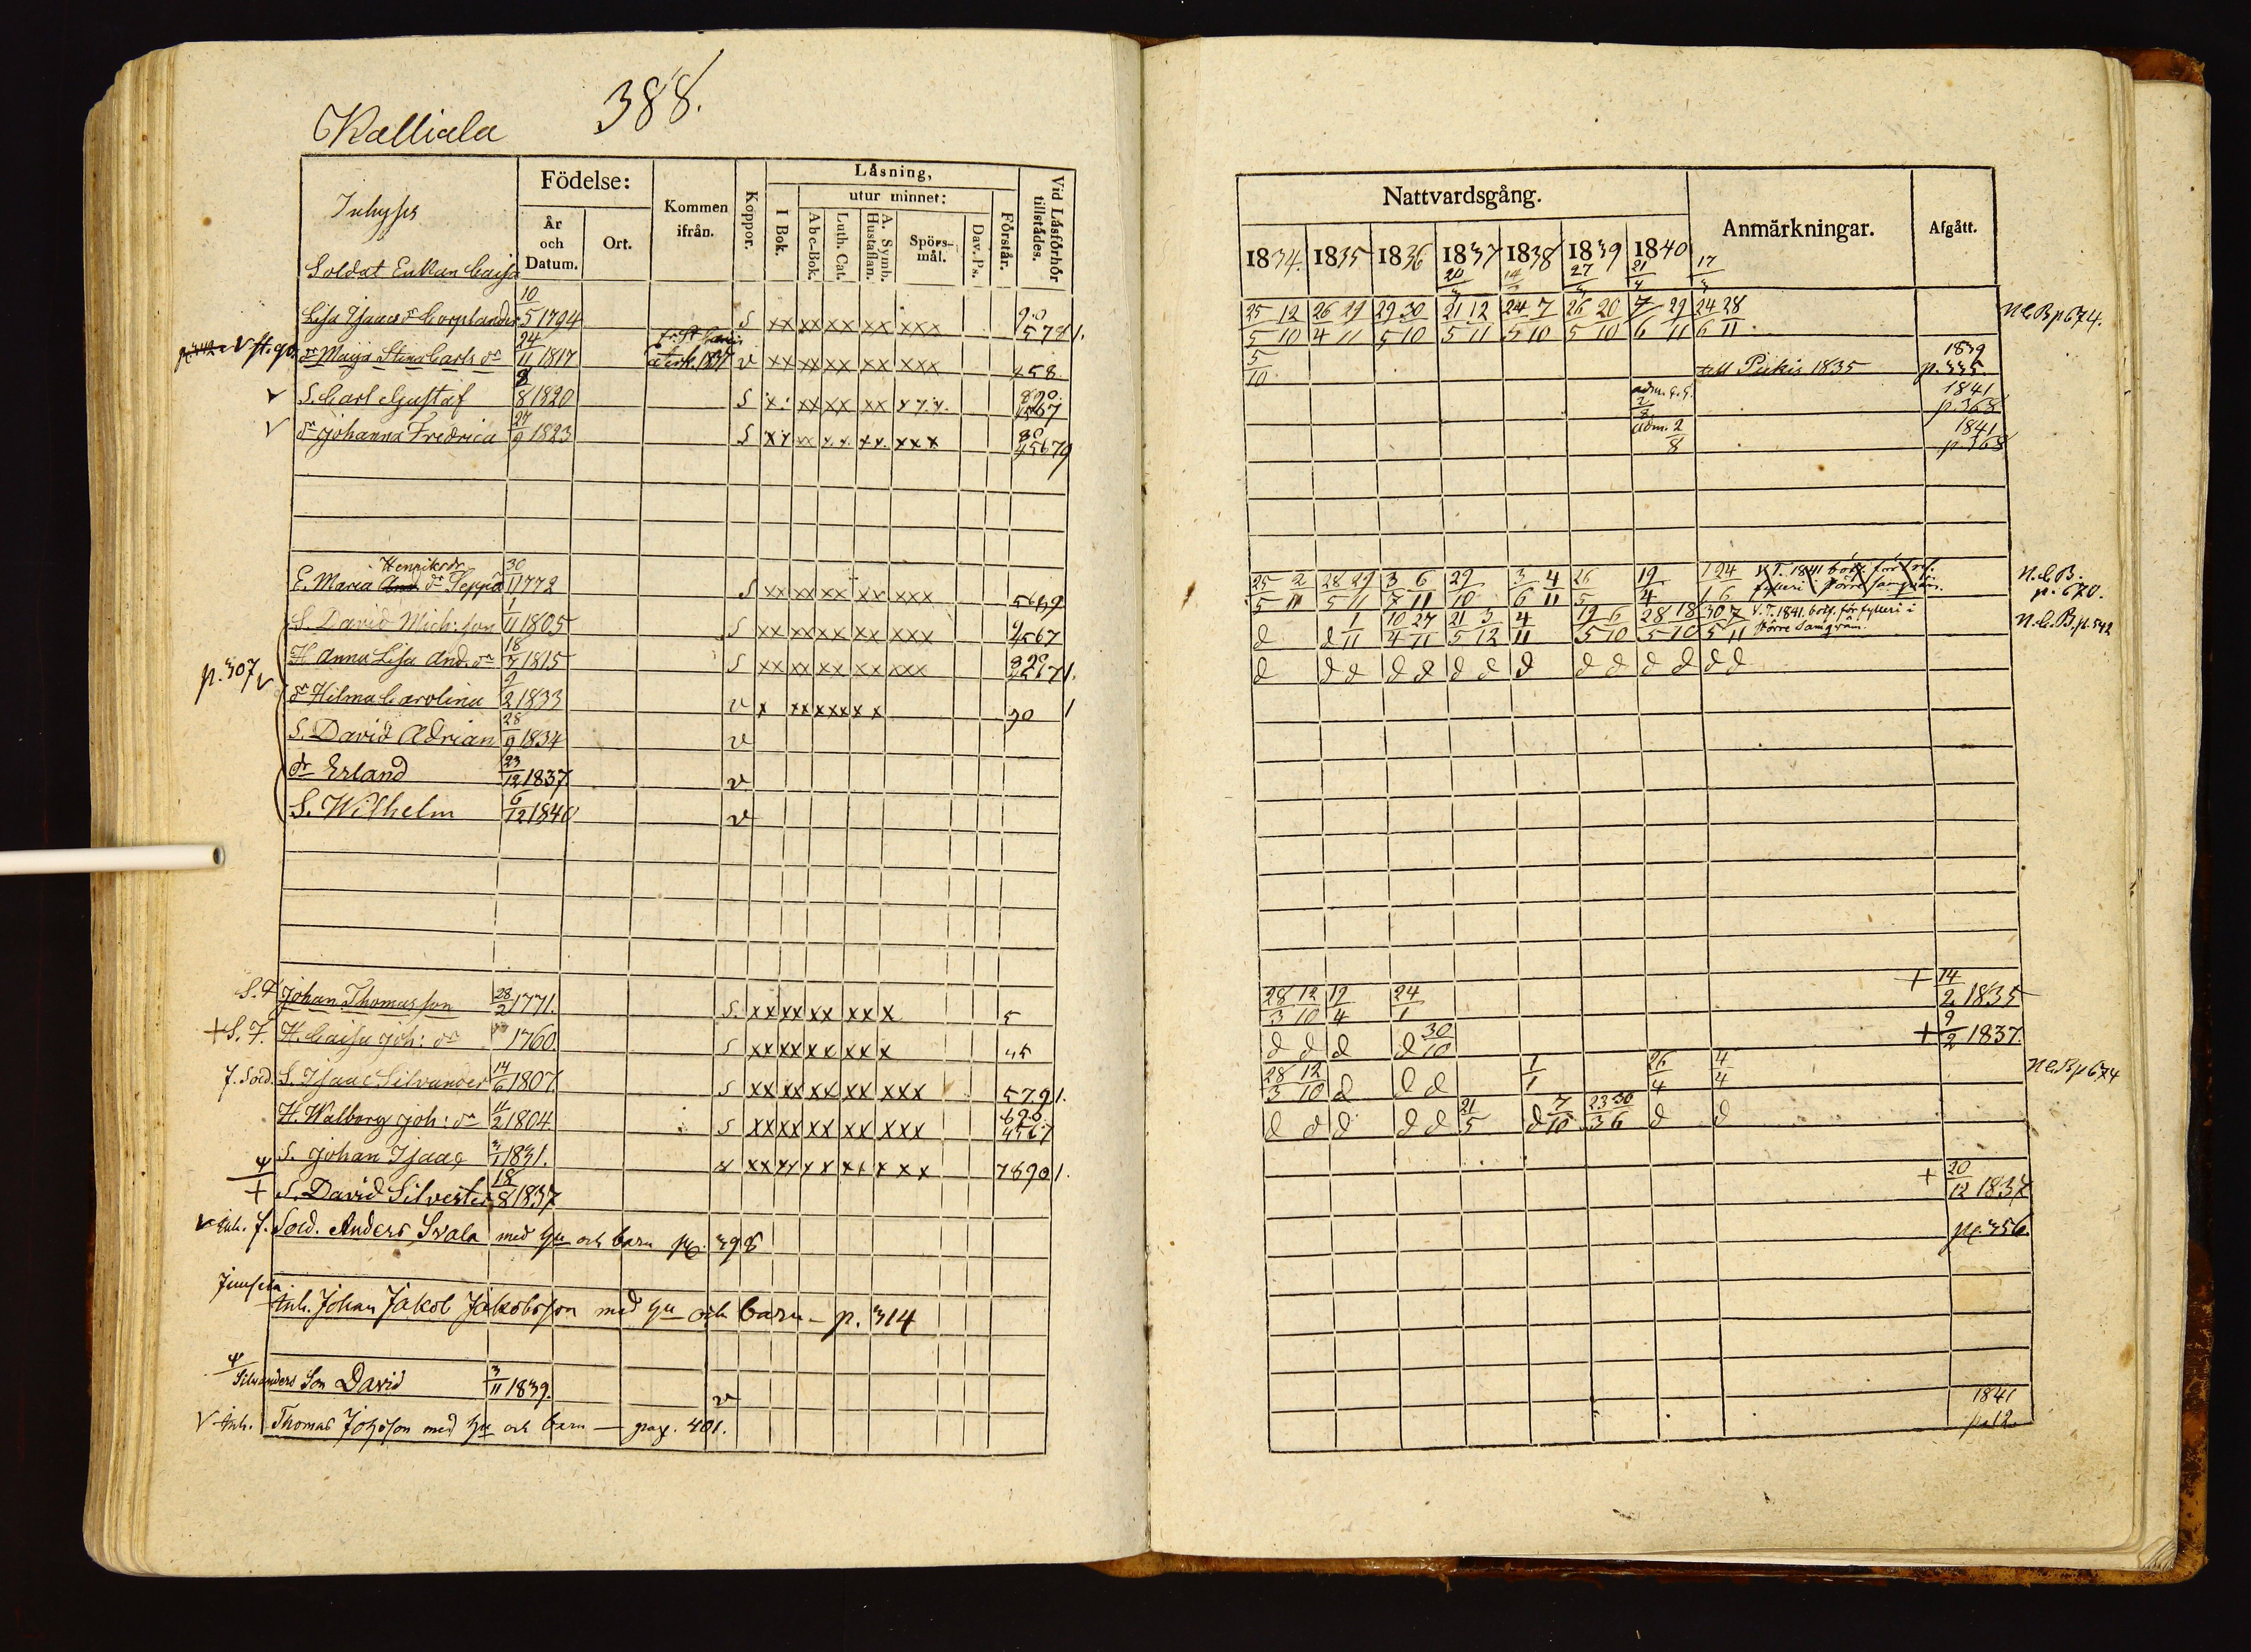 388.
Kalliala
Inhyses
Födelse:
År och Datum.
Ort.
Kommen ifrån.
Koppor.
Låsning,
I Bok.
utur minnet:
Abc-Bok.
Luth. Cat.
A. Symb. Hustaflan.
Spörsmål.
Dav. Ps.
Förstår.
Vid Låsförhör tillstådes.
Nattvardsgång.
1834. 1835 1836 1837 1838 1839 1840
Anmärkningar.
Afgått.
Soldat Enkan Caisa
Lisa Isaacs dr 10/5 1794 S xx xx xx xx xxx 90 5781. 25/5 12/10 26/4 29/11 29/5 30/10 21/5 12/11 24/5 7/10 26/5 20/10 7/6 29/11 24/6 28/11 N.C.B. p 674.
dr Maija Stina Carls dr 24/11 1817 v xx xx xx xx xxx 458. 5/10 till Piikis 1835 1839 p. 335.
S. Carl Gustaf 8/8 1820 S 1841 p. 368
dr Johanna Fredrica 27/9 1823 S xx xx xx xx xxx 80 45679 adm. 2/8 1841 p. 368
Henriksdr
E. Maria dr Seppä 30/11 1772 S xx xx xx xx xxx 25/5 2/11 28/5 29/11 3/7 6/11 29/10 3/6 4/11 26/5 19/4 N.C.B. p. 670.
S. David Mich: son 1/11 1805 S xx xx xx xx xxx 4567 d d 1/11 10/4 27/11 21/5 3/12 4/11 19/5 6/10 28/5 18/10 30/5 7/11 V.T. 1841. botf. för fylleri i större samqväm. N.C.B. p. 542
p. 307 v
H Anna Lisa And. dr 18/7 1815 S xx xx xx xx xxx d d d d d d d d d d d d d d
dr Hilma Carolina 9/2 1833 v x xx xx xx 90 1
S. David Adrian 28/9 1834 v
dr Erland 23/12 1837 v
S. Wilhelm 6/12 1840 v
S. F. Johan Thomasson 28/2 1771. S. xx xx xx xx x 5 28/3 12/10 19/4 24/1 + 14/2 1835
+ S. F. H. Caisa Joh: dr 1760. S xx xx xx xx x 45 d d d d 30/10 + 9/2 1837.
f. Sold. S. Isaac Silvander 14/6 1807. S xx xx xx xx xxx 5791. 28/3 12/10 d d d 1/1 26/4 4/4 N.C.B. p 674
H. Walborg Joh: dr 11/2 1804 S xx xx xx xx xxx 690. 4567 d d d d d 21/5 d 7/10 23/3 30/6 d d
S. Johan Isaac 3/1 1831. xx xx xx xx xxx 7890 1.
+ S. David Silvester 18/8 1837 + 20/12 1837
v Inh. f. Sold. Anders Svala med hu och barn pg. 398 pg. 356.
Inh. Johan Jakob Jakobsson med hu och barn — p. 314
Silvanders Son David 3/11 1839. v
v Inh. Thomas Johsson med hu och barn — pag. 401. 1841 p. 12